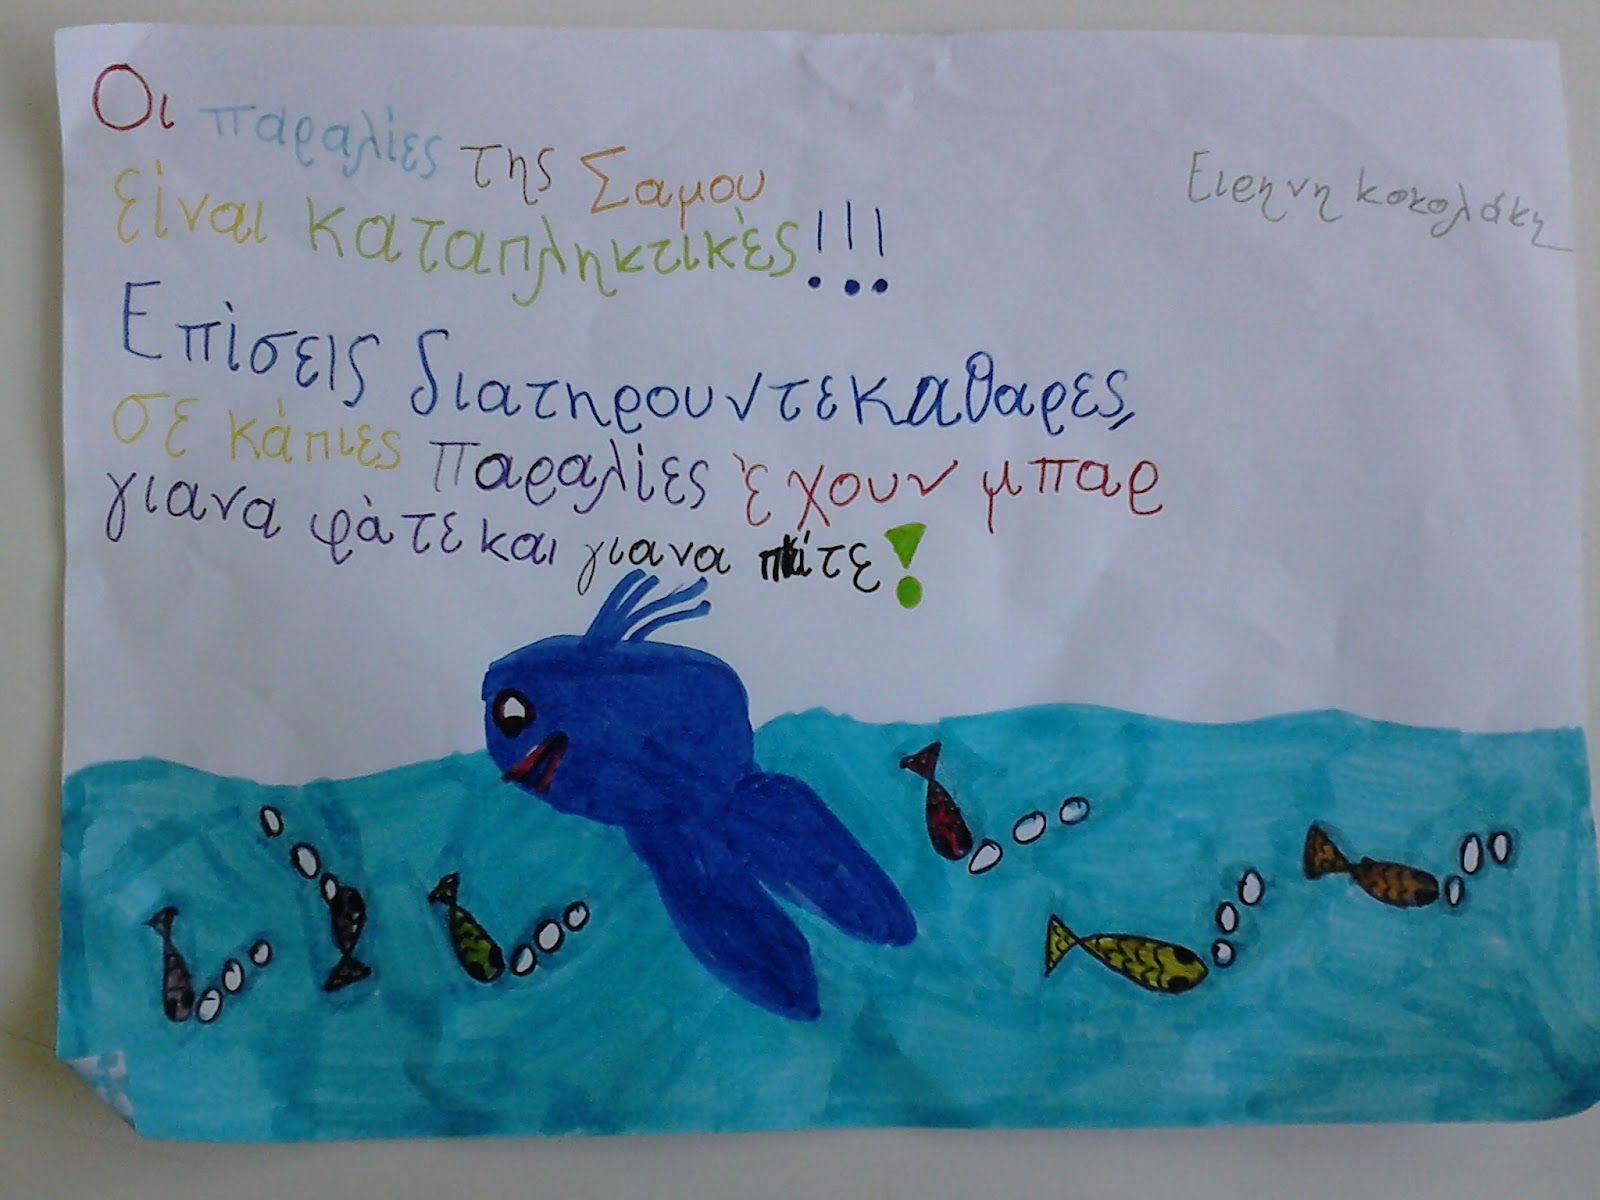 Οι παραλίες της Σαμου
είναι καταπληκτικές!!!
Επίσεις διατηρουντεκαθαρες,
σε κάπιες παραλίες έχουν μπαρ
γιανα φάτε και γιανα πίτε!
Ειρηνη κοκολάκη